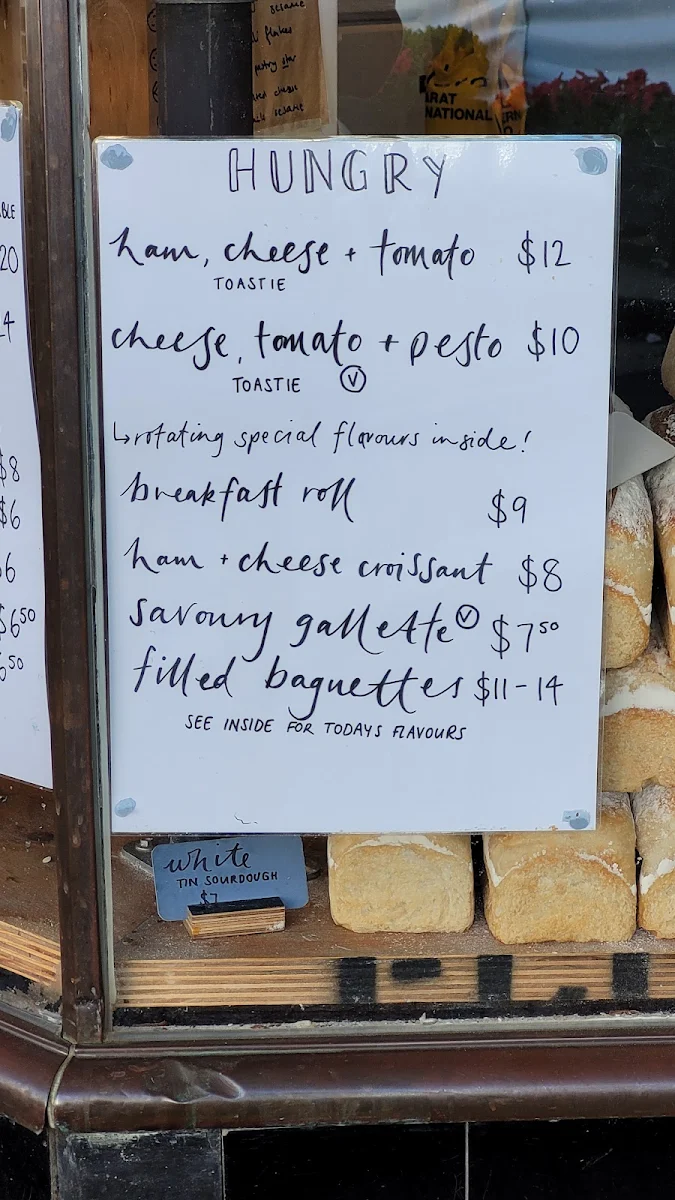 sesame
flakes
HUNGRY
ham, cheese + tomato $12
TOASTIE
cheese, tomato + pesto $10
TOASTIE Ⓥ
↳rotating special flavours inside!
breakfast roll $9
ham + cheese croissant $8
savoury gallette Ⓥ $7⁵⁰
filled baguettes $11-14
SEE INSIDE FOR TODAYS FLAVOURS
white
TIN SOURDOUGH
$7
ARAT
NATIONAL
20
4
$8
$6
6
$6⁵⁰